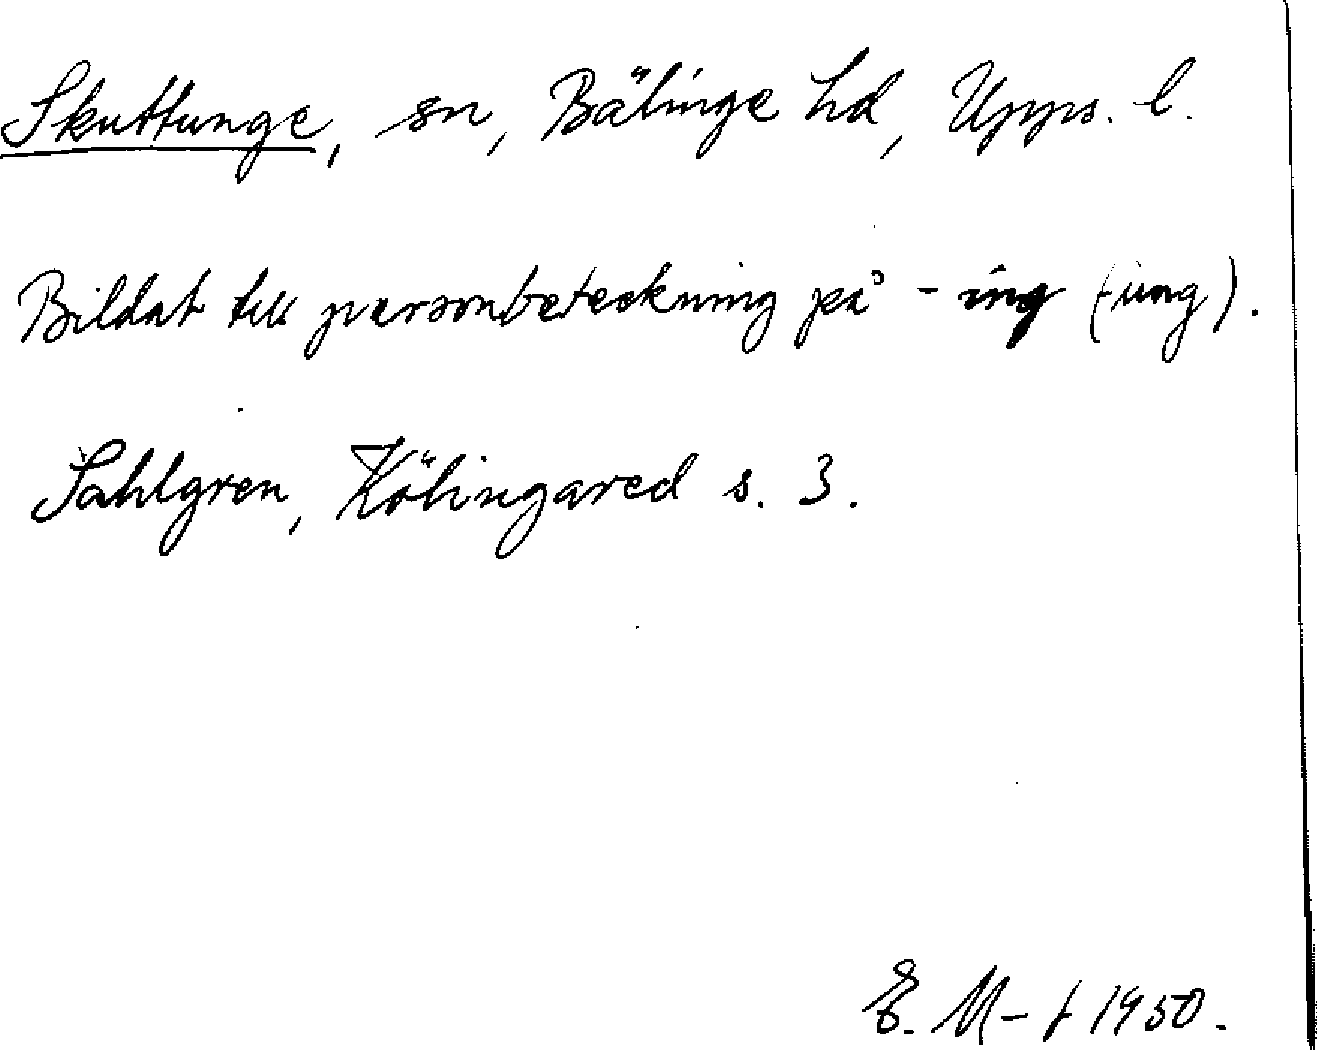 Skuttunge, sn, Bälinge hd, Upps. l.
Bildat till personbeteckning på -ing (-ung).
Sahlgren, Kölingared s. 3.
E. M-f 1950.